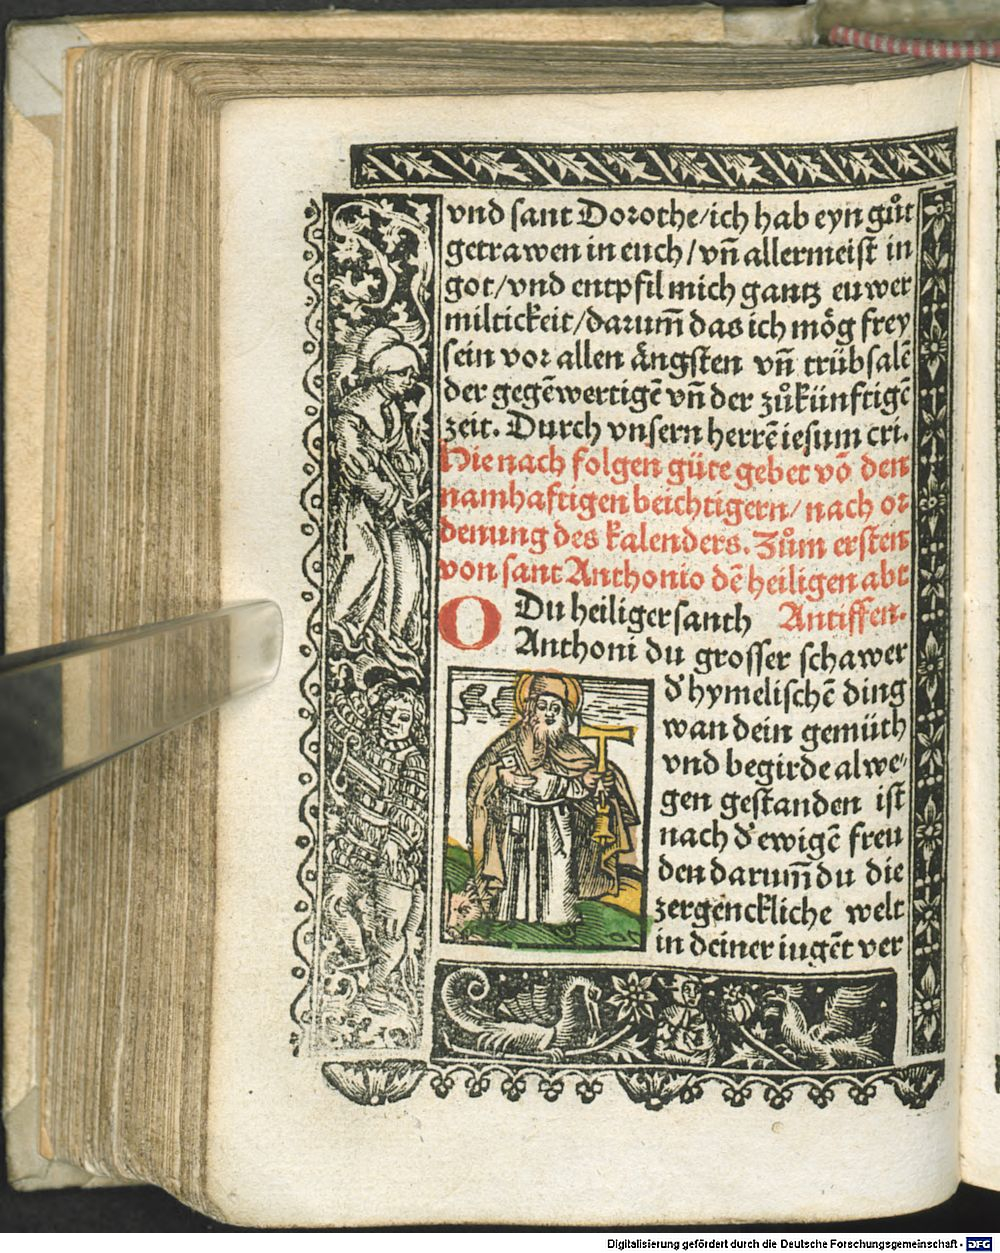 vnd sant Dorothe/ich hab eyn gůt
getrawen in euch/vñ allermeist in
got/vnd entpfil mich gantz euwer
miltickeit/darum̃ das ich mög frey
sein vor allen ängsten vñ trübsalẽ
der gegẽwertigẽ vñ der zůkünftigẽ
zeit. Durch vnsern herrẽ iesum cri.
Hie nach folgen güte gebet võ den
namhaftigen beichtigern/nach or
denung des kalenders. Zům ersten
von sant Anthonio dẽ heiligen abt
O Du heiliger santh Antiffen.
Anthoni du grosser schawer
d' hymelischẽ ding
wan dein gemüth
vnd begirde alwe⸗
gen gestanden ist
nach d' ewigẽ freu
den darum̃ du die
zergenckliche welt
in deiner iugẽt ver
Digitalisierung gefördert durch die Deutsche Forschungsgemeinschaft - DFG